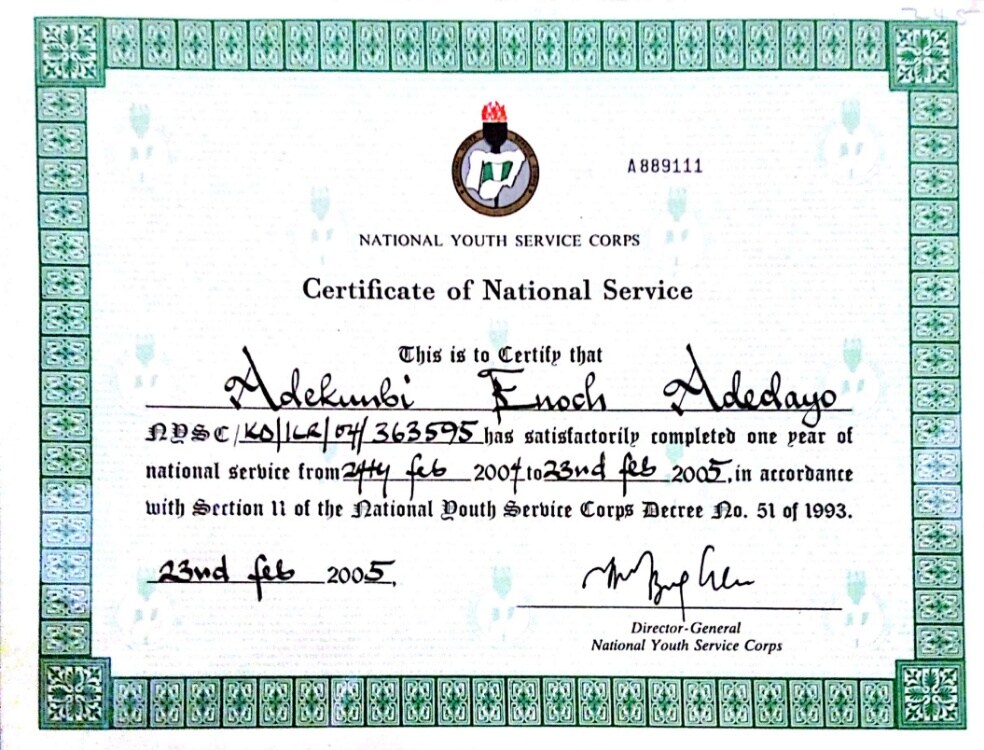 A889111
NATIONAL YOUTH SERVICE CORPS
Certificate of National Service
This is to Certify that
Adekunbi Enoch Adedayo
NYSC/KD/ILR/04/363595 has satisfactorily completed one year of
national service from 24th feb 2004 to 23nd feb 2005, in accordance
with Section 11 of the National Youth Service Corps Decree No. 51 of 1993.
23nd feb 2005,
Director-General
National Youth Service Corps